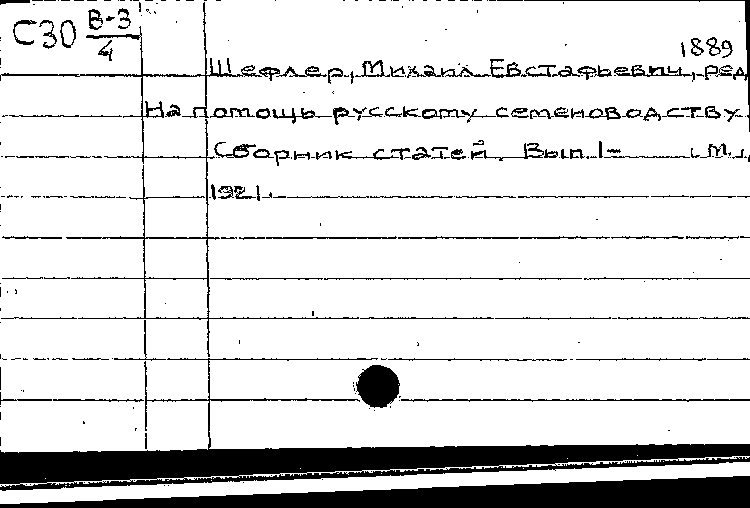 С30 В-3/4
1889
Шефлер, Михаил Евстафьевич, ред.
На помощь русскому семеноводству.
Сборник статей. Вып. I- , М.,
1921.